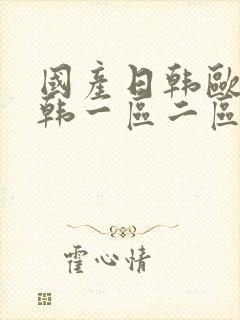 國產日韩歐
韩一區二區
霍心情